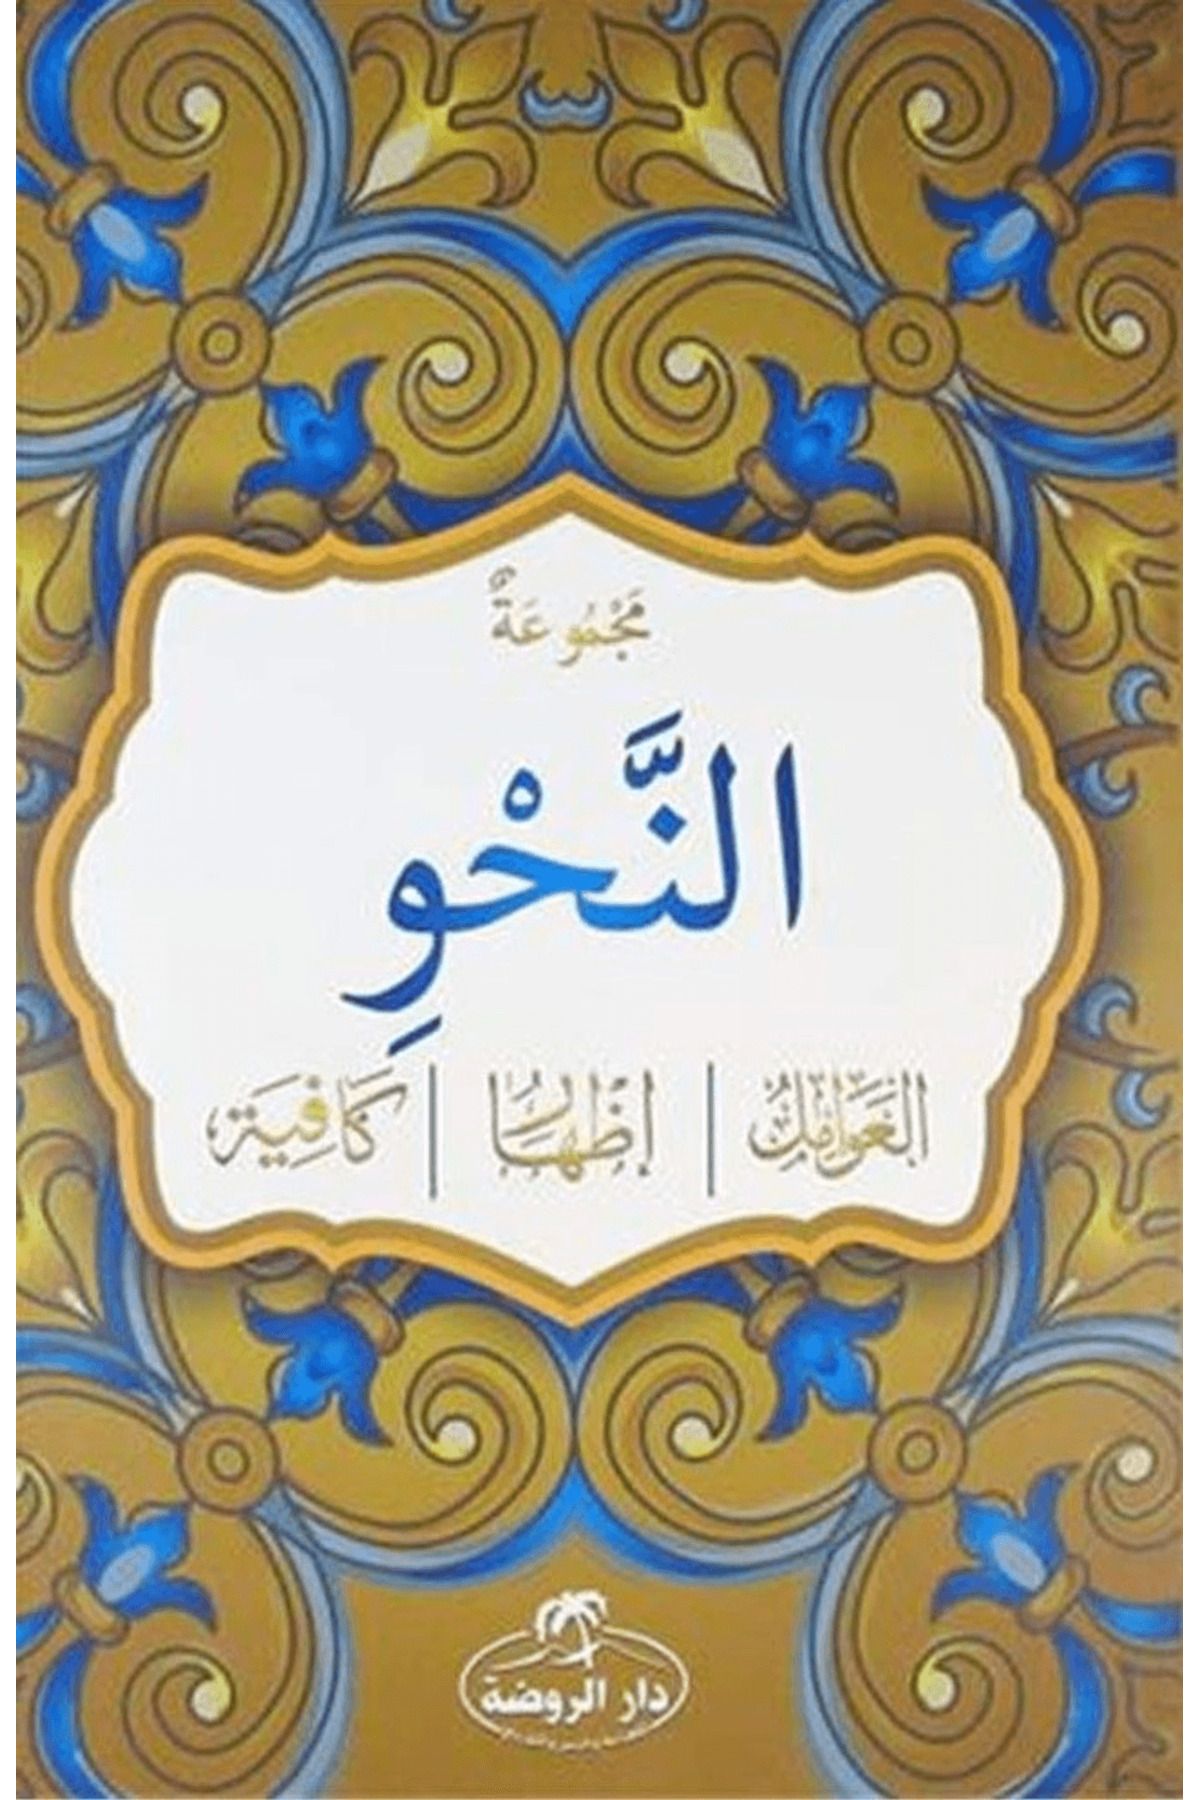 مَجْمُوعَةٌ
النَّحْوِ
العَوَامِلُ | إظْهَارُ | كَافِيَة
دار الروضة